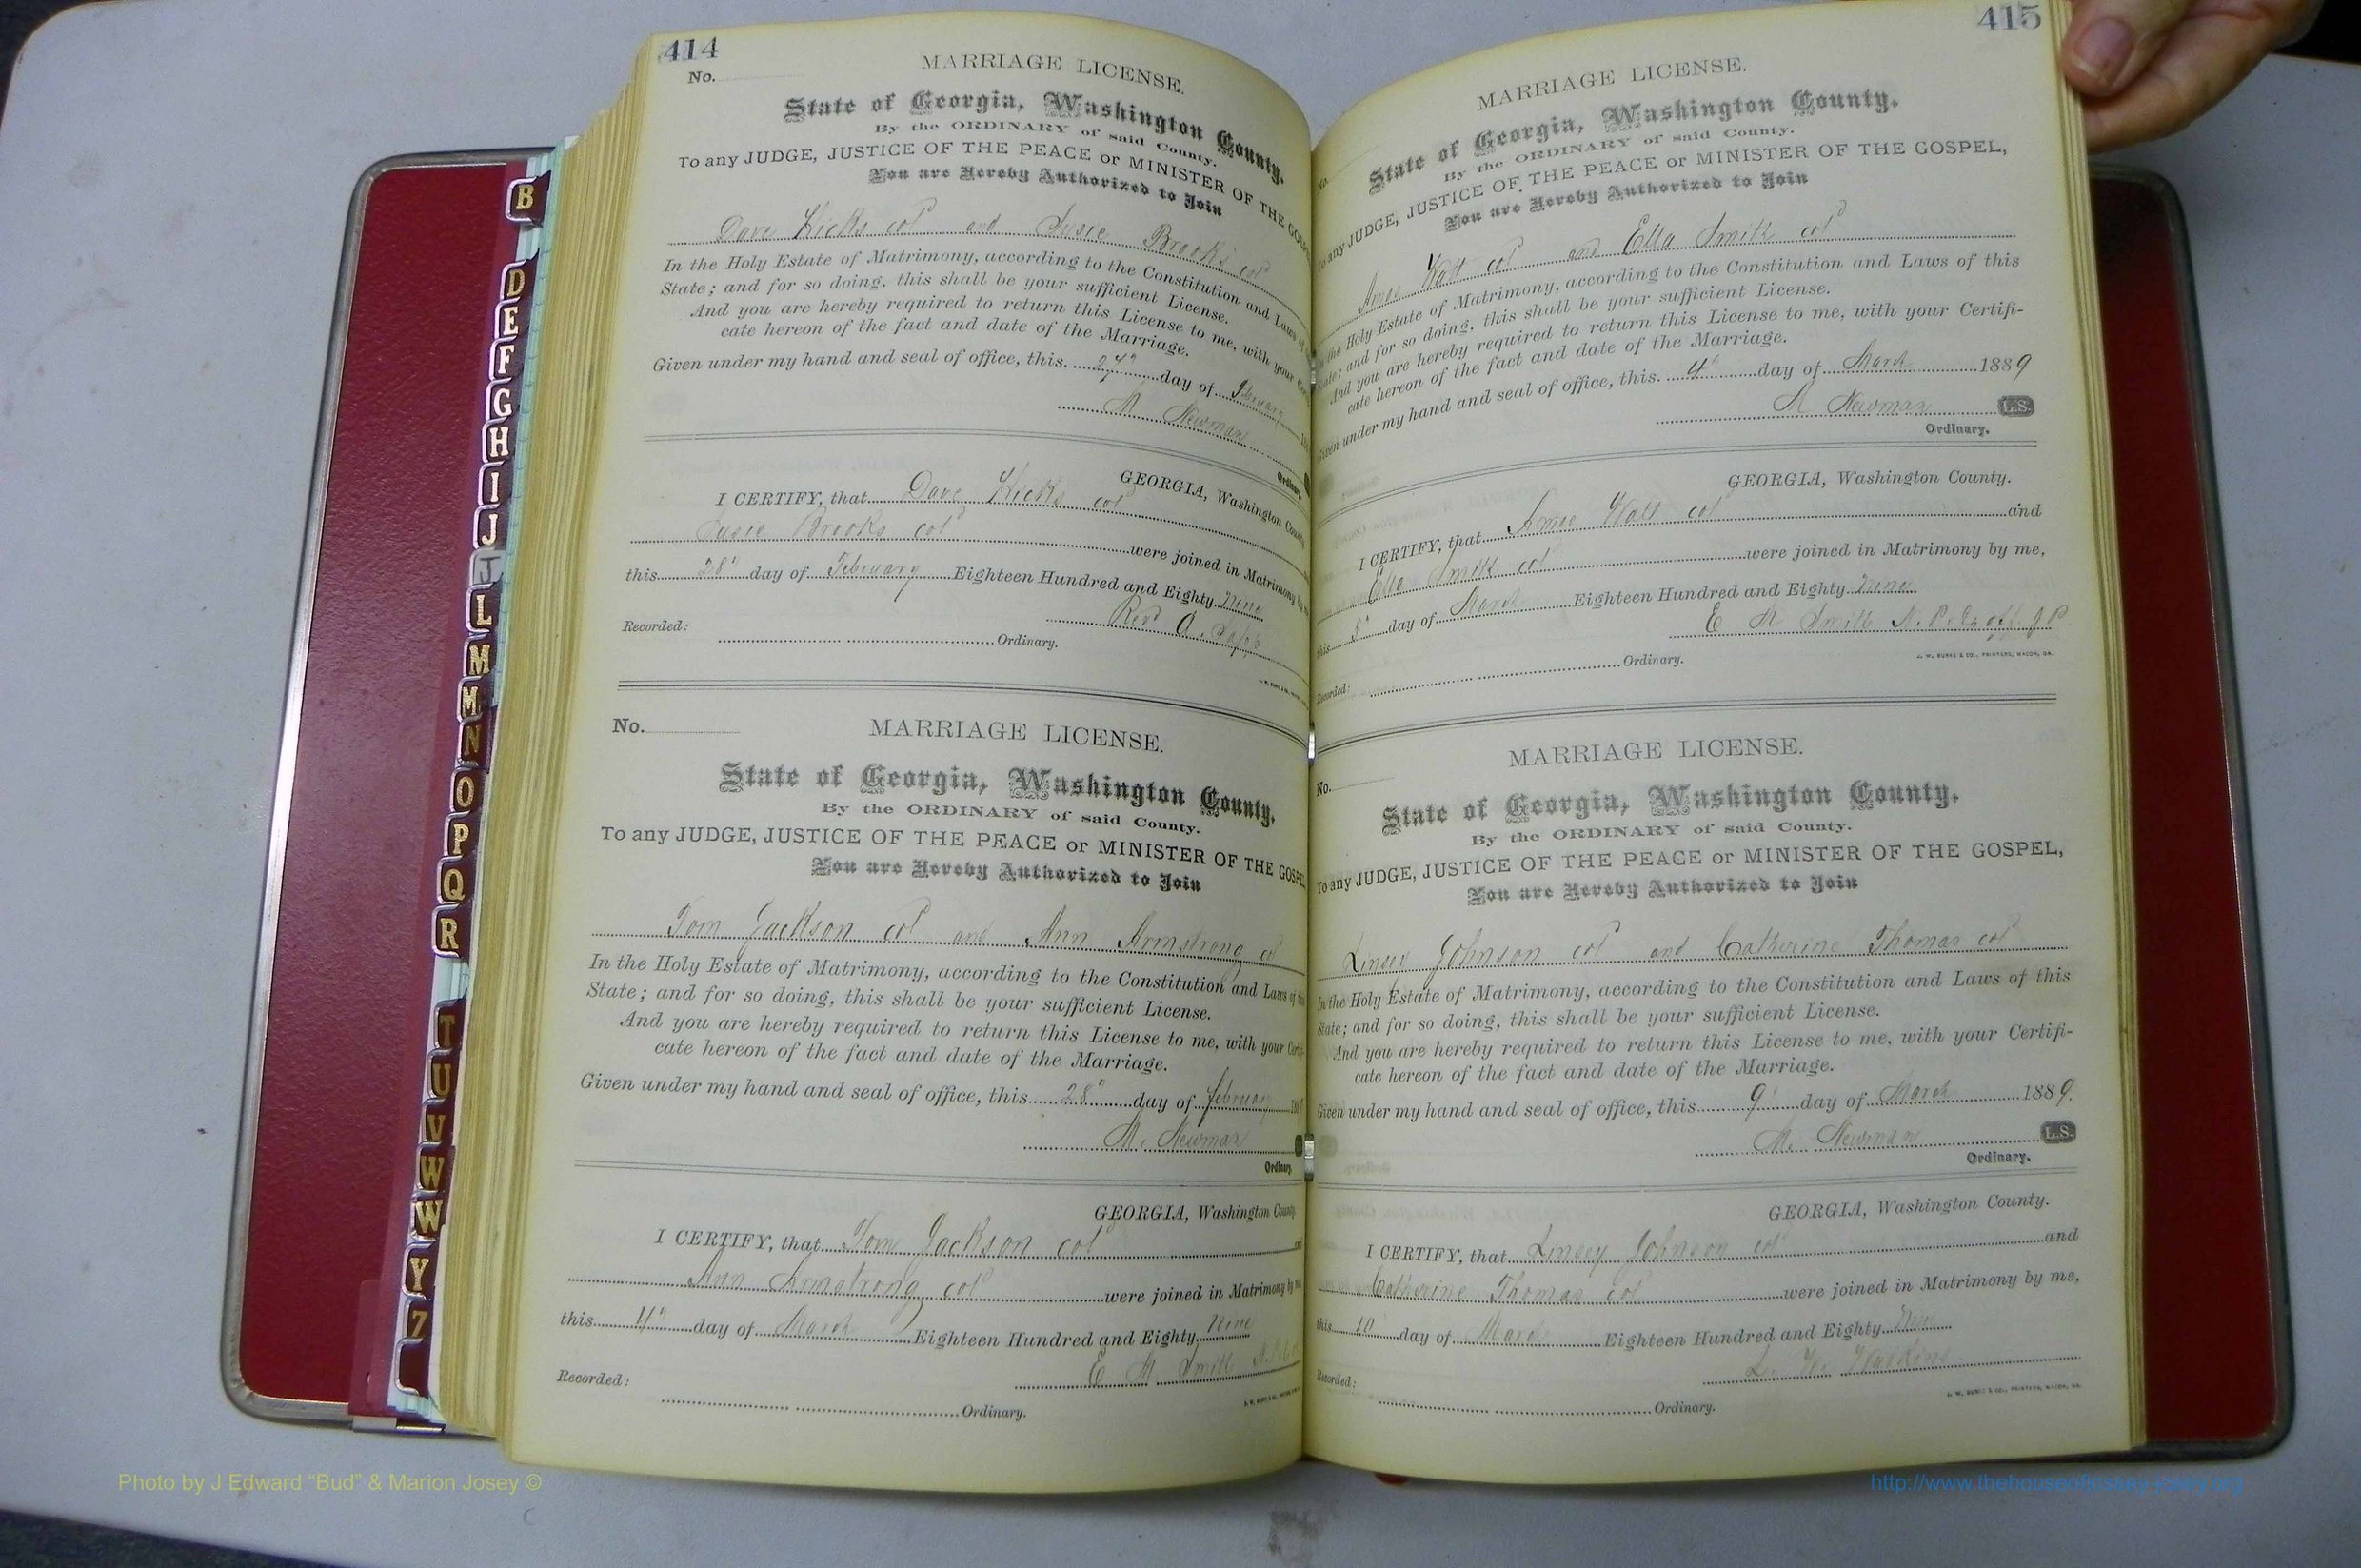 414
No.
MARRIAGE LICENSE.
State of Georgia, Washington County.
By the ORDINARY of said County.
To any JUDGE, JUSTICE OF THE PEACE or MINISTER OF THE GOSP
You are Hereby Authorized to Join
Dave Hicks col and Susie Brooks col
In the Holy Estate of Matrimony, according to the Constitution and Laws of
State; and for so doing, this shall be your sufficient License.
And you are hereby required to return this License to me, with your
cate hereon of the fact and date of the Marriage.
Given under my hand and seal of office, this 27" day of February
M Newman
Ordinary.
GEORGIA, Washington County
I CERTIFY, that Dave Hicks col
Susie Brooks col were joined in Matrimony by
this 28" day of February Eighteen Hundred and Eighty nine
Rev A.
Recorded: Ordinary.
No.
MARRIAGE LICENSE.
State of Georgia, Washington County.
By the ORDINARY of said County.
To any JUDGE, JUSTICE OF THE PEACE or MINISTER OF THE GOSPEL
You are Hereby Authorized to Join
Tom Jackson col and Ann Armstrong col
In the Holy Estate of Matrimony, according to the Constitution and Laws of this
State; and for so doing, this shall be your sufficient License.
And you are hereby required to return this License to me, with your Certifi-
cate hereon of the fact and date of the Marriage.
Given under my hand and seal of office, this 28" day of February
M. Newman
Ordinary.
GEORGIA, Washington County
I CERTIFY, that Tom Jackson col
Ann Armstrong col were joined in Matrimony by me
this 4" day of March Eighteen Hundred and Eighty Nine
E R Smith
Recorded: Ordinary.
415
No.
MARRIAGE LICENSE.
State of Georgia, Washington County.
By the ORDINARY of said County.
To any JUDGE, JUSTICE OF THE PEACE or MINISTER OF THE GOSPEL,
You are Hereby Authorized to Join
Amos Watt col and Ella Smith col
the Holy Estate of Matrimony, according to the Constitution and Laws of this
State; and for so doing, this shall be your sufficient License.
And you are hereby required to return this License to me, with your Certifi-
cate hereon of the fact and date of the Marriage.
Given under my hand and seal of office, this 4" day of March 1889
M Newman L.S.
Ordinary.
GEORGIA, Washington County.
I CERTIFY, that Amos Watt col and
Ella Smith col were joined in Matrimony by me,
this 5" day of March Eighteen Hundred and Eighty nine
E R Smith N.P. & ex off J P
Recorded: Ordinary.
J. W. BURKE & CO., PRINTERS, MACON, GA.
MARRIAGE LICENSE.
No.
State of Georgia, Washington County.
By the ORDINARY of said County.
To any JUDGE, JUSTICE OF THE PEACE or MINISTER OF THE GOSPEL,
You are Hereby Authorized to Join
Linsey Johnson col and Catherine Thomas col
In the Holy Estate of Matrimony, according to the Constitution and Laws of this
State; and for so doing, this shall be your sufficient License.
And you are hereby required to return this License to me, with your Certifi-
cate hereon of the fact and date of the Marriage.
Given under my hand and seal of office, this 9" day of March 1889.
M. Newman L.S.
Ordinary.
GEORGIA, Washington County.
I CERTIFY, that Linsey Johnson col and
Catherine Thomas col were joined in Matrimony by me,
this 10 day of March Eighteen Hundred and Eighty Nine
L. W. Watkins
Recorded: Ordinary.
J. W. BURKE & CO., PRINTERS, MACON, GA.
B
D
E
F
G
H
I
J
J
L
M
M
N
O
P
Q
R
T
U
V
W
W
Y
Z
Photo by J Edward “Bud” & Marion Josey ©